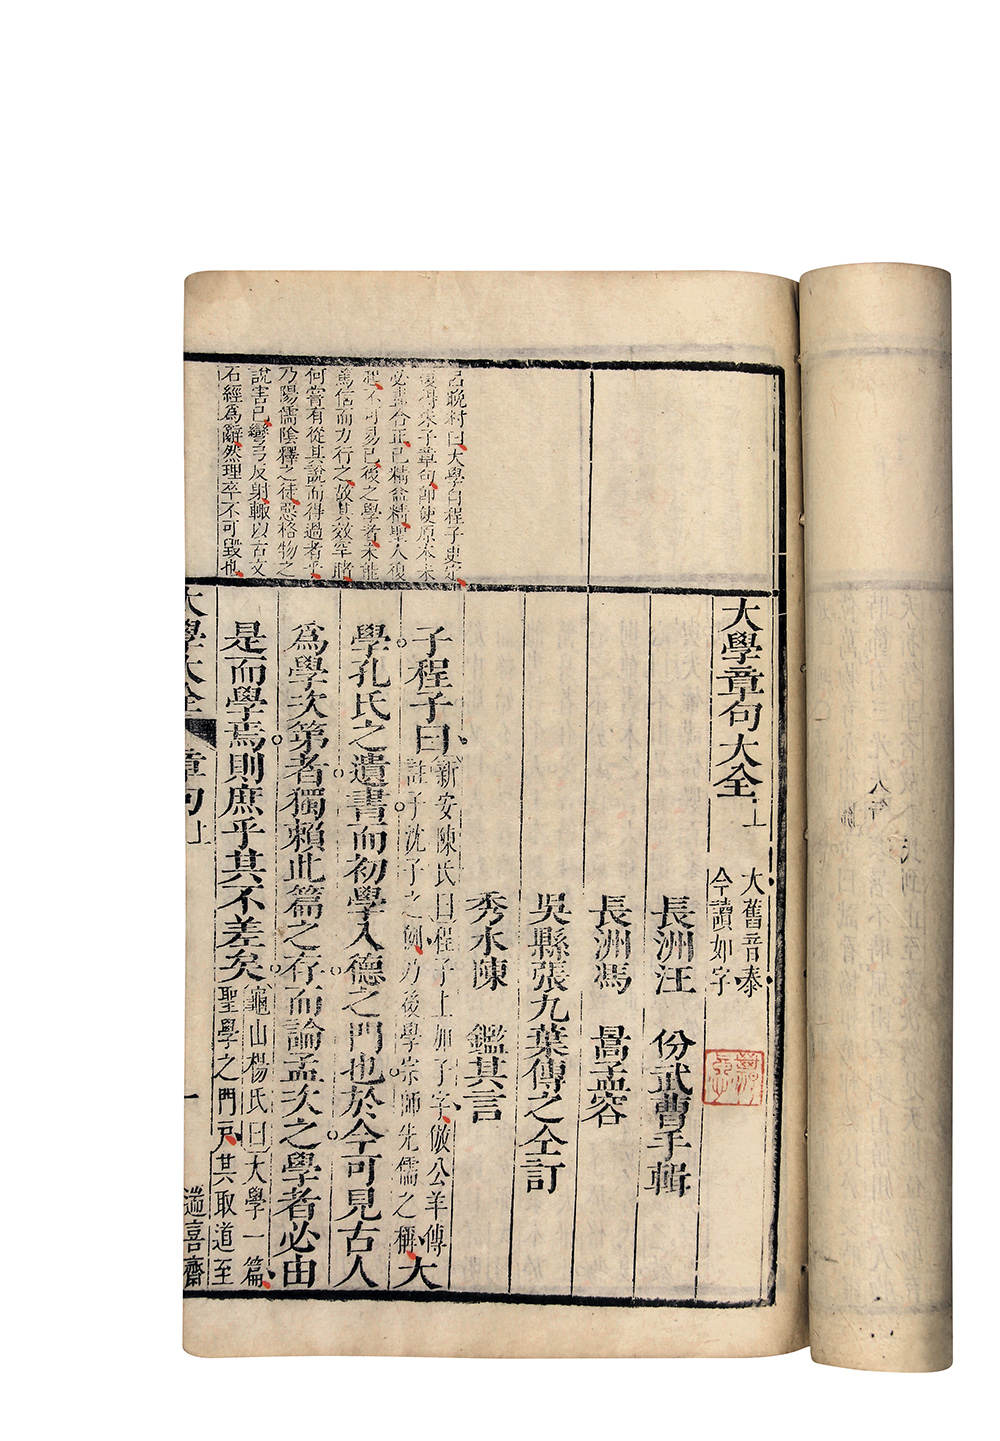 呂晚村曰大學自程子更定
復得朱子章句卽使原本未
必盡合正已精益精聖人復
起不可易已後之學者未能
篤信而力行之故其效罕睹
何嘗有從其說而得過者乎
乃陽儒陰釋之徒惡格物之
說害己彎弓反射輒以古文
石經為辭然理卒不可毀也
大學章句大全上
大舊音泰
今讀如字
長洲汪 份武曹手輯
長洲馮 暠孟容
吳縣張九葉傳之仝訂
秀水陳 鑑其言
子程子曰
新安陳氏曰程子上加子字倣公羊傳
註子沈子之例乃後學宗師先儒之稱
大
學孔氏之遺書而初學入德之門也於今可見古人
為學次第者獨賴此篇之存而論孟次之學者必由
是而學焉則庶乎其不差矣
龜山楊氏曰大學一篇
聖學之門戸其取道至
大學大全
章句上
一
遄喜齋